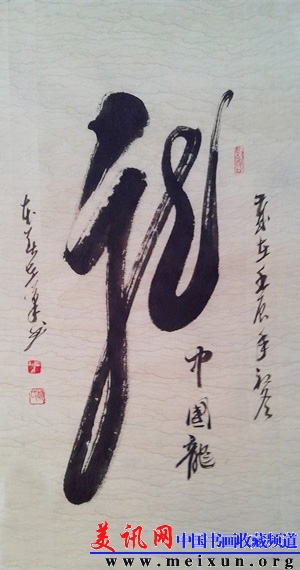 龙
岁在壬辰年初冬
中國龍
美讯网 中国书画收藏频道
www.meixun.org